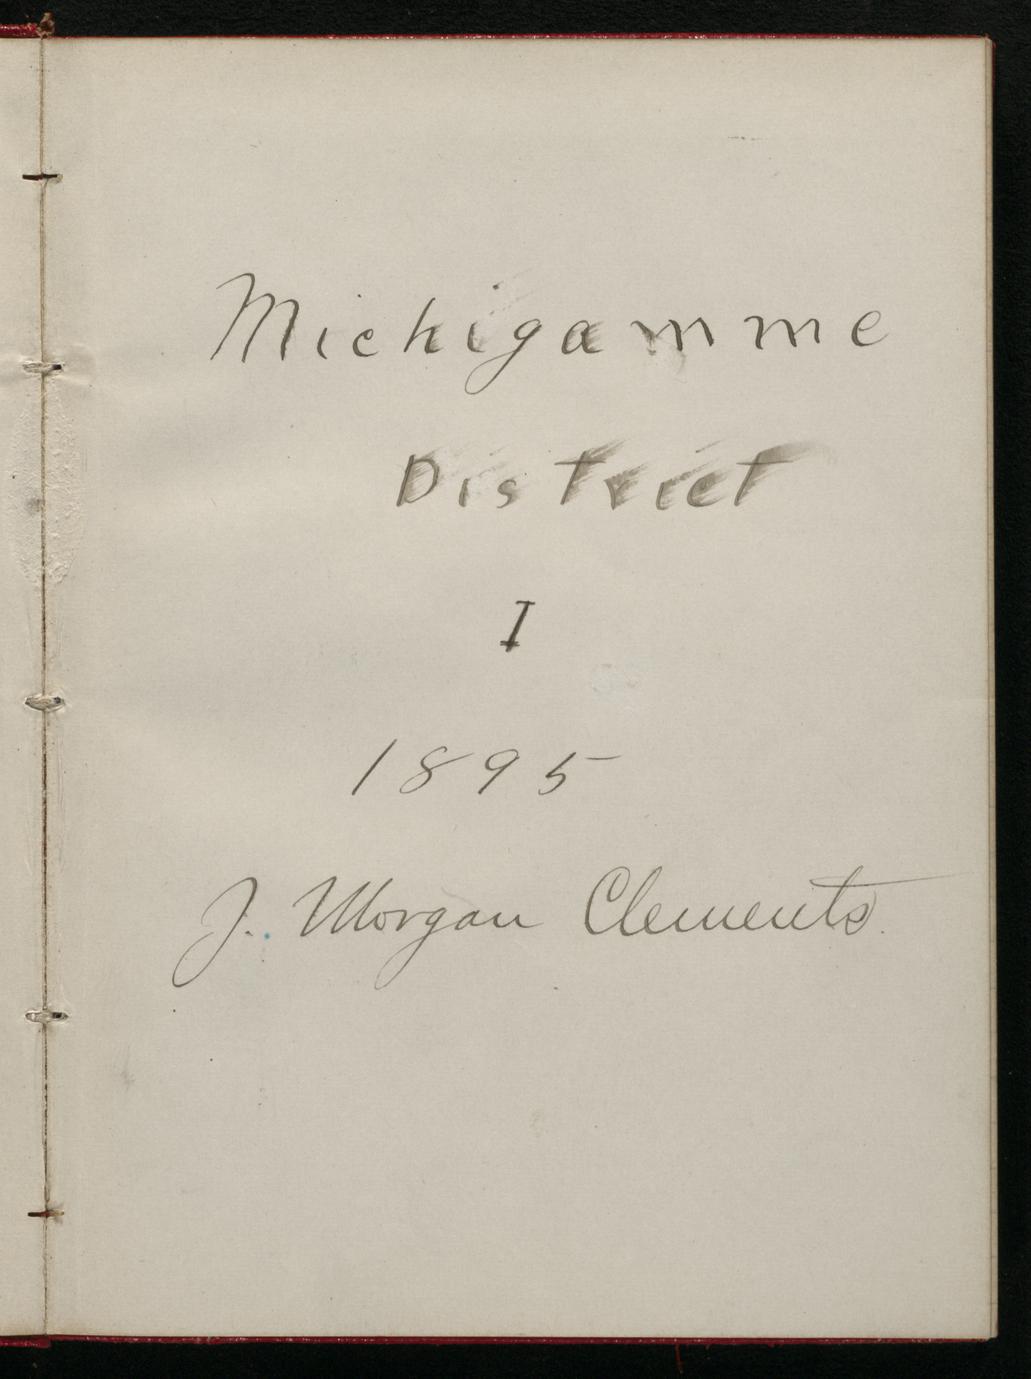 Michigamme
District
I
1895
J. Morgan Clements.